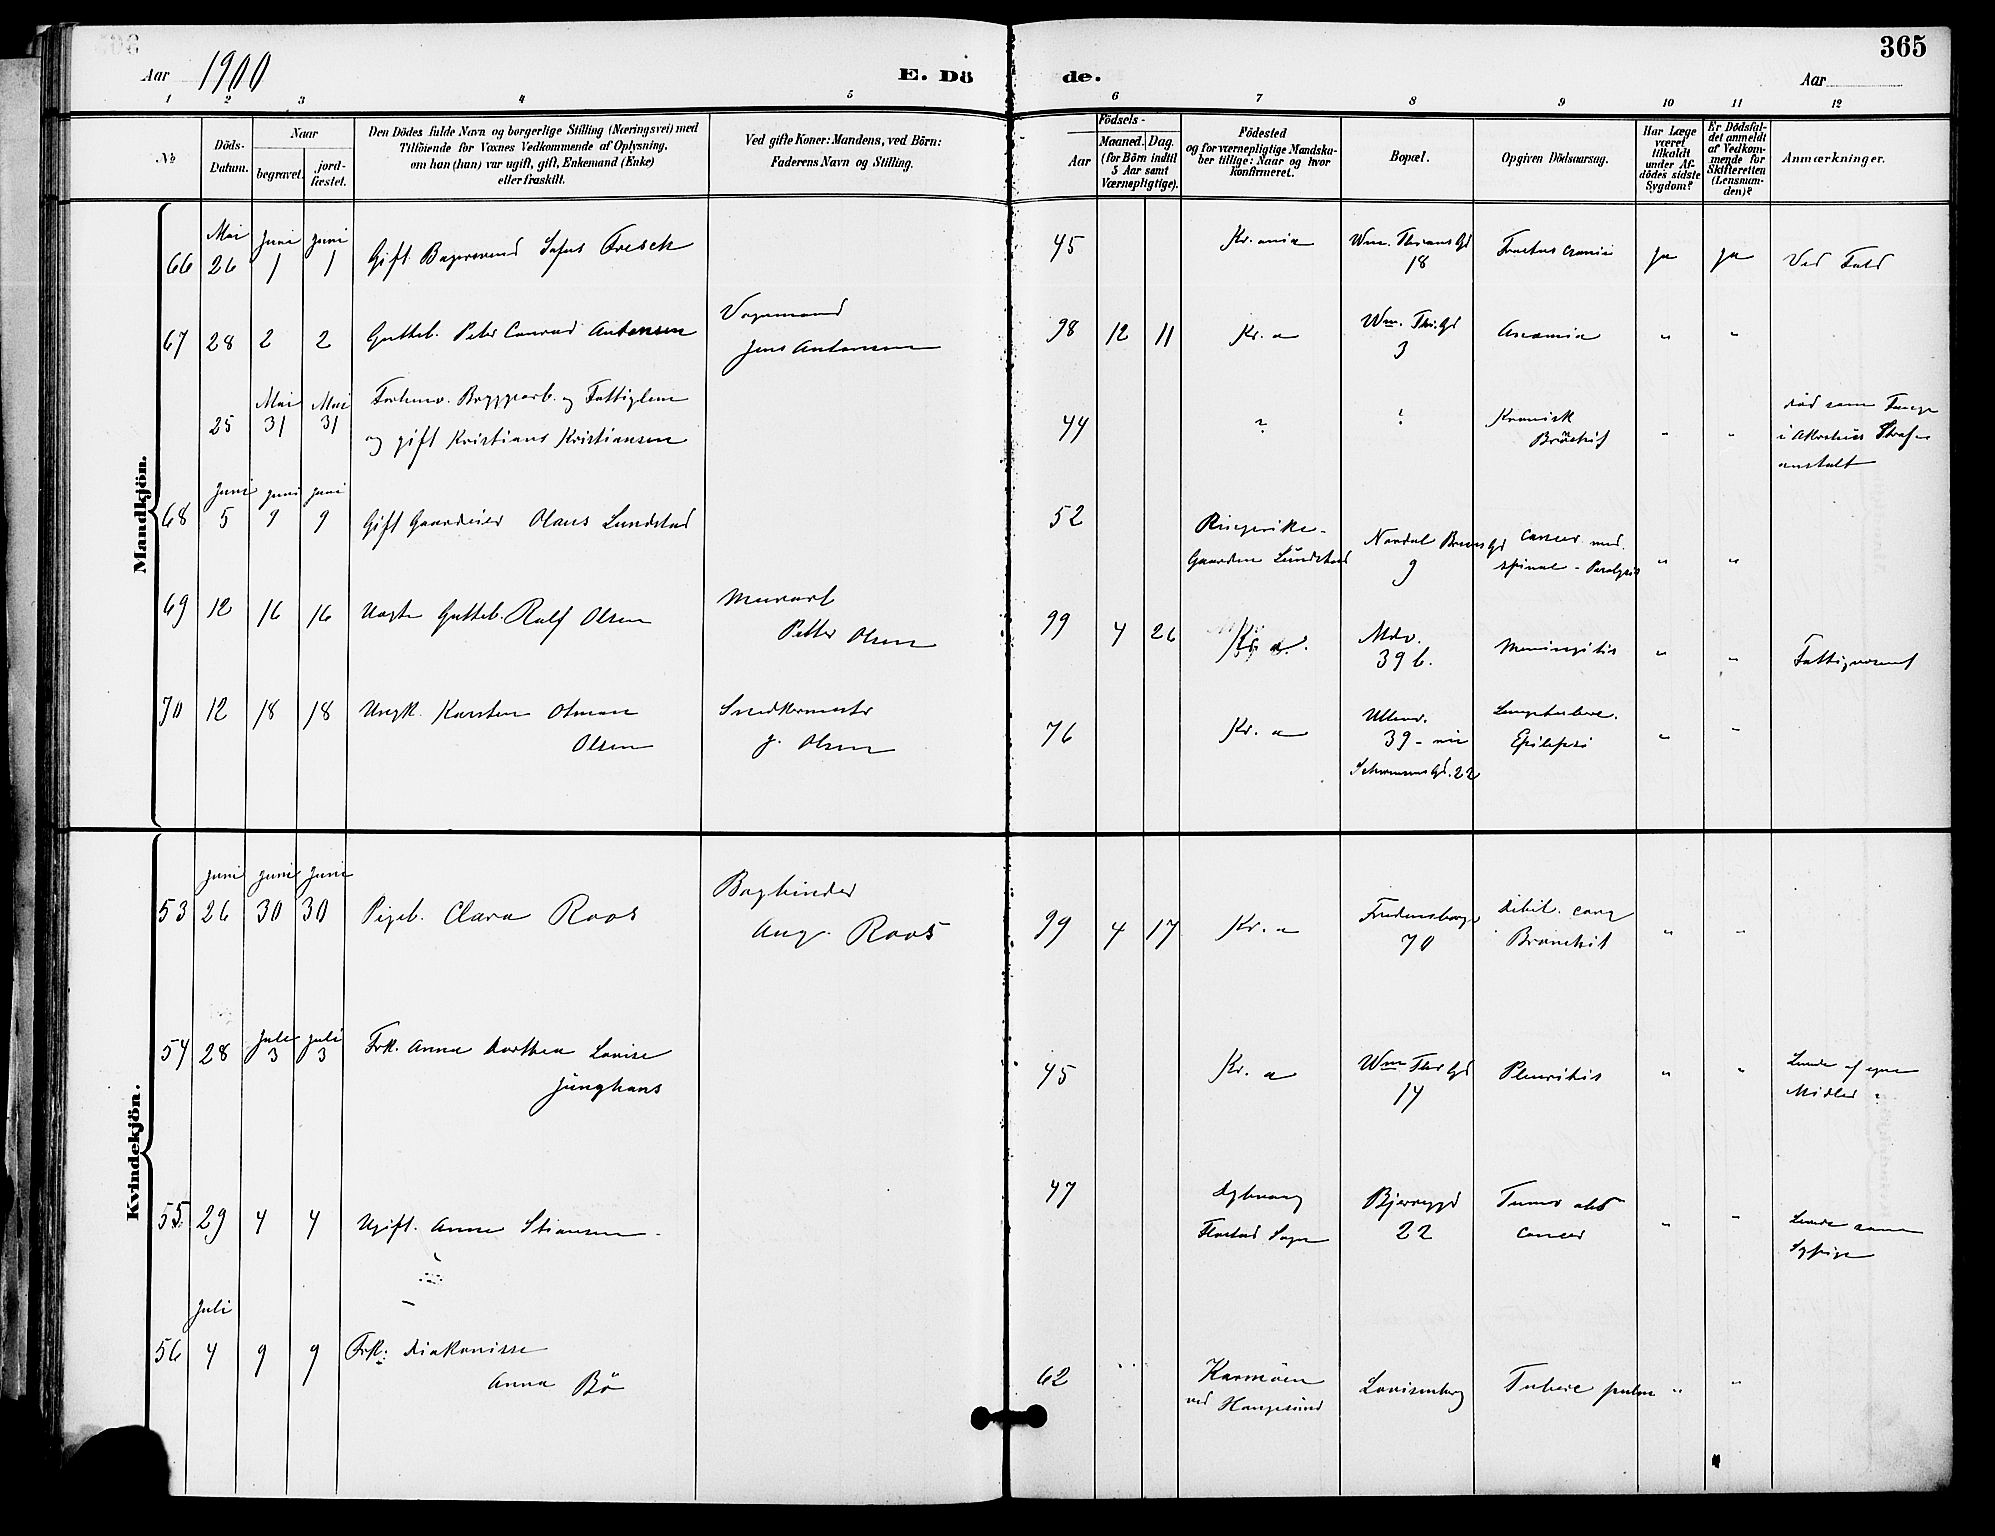 365
Aar 1900
E. Dö de.
Aar
1 2 3 4 5 6 7 8 9 10 11 12
No
Döds-Datum.
Naar
begravet.
jord-fæstet.
Den Dödes fulde Navn og borgerlige Stilling (Næringsvei) med
Tilföiende for Voxnes Vedkommende af Oplysning,
om han (hun) var ugift, gift, Enkemand (Enke)
eller fraskilt.
Ved gifte Koner: Mandens, ved Börn:
Faderens Navn og Stilling.
Födsels-
Aar
Maaned.
Dag.
(for Börn indtil
5 Aar samt
Værnepligtige).
Födested
og for værnepligtige Mandska-
ber tillige: Naar og hvor
konfirmeret.
Bopæl.
Opgiven Dödsaarsag.
Har Læge
været
tilkaldt
under Af-
dödes sidste
Sygdom?
Er Dödsfal-
det anmeldt
af Vedkom-
mende for
Skifteretten
(Lensman-
den)?
Anmærkninger.
Mandkjön.
Mai Juni Juni
66 26 1 1 Gift Sofus Fresch 45 Kr.ania 18 Ja Ja Ved Fald
67 28 2 2 Gutteb. Peter Conrad Antonsen
Vognmand
Jens Antonsen
98 12 11 Kr. a 3 " "
Mai Mai
25 31 31
og gift Kristians Kristiansen
44 ? ? Kronisk
" "
død som Fange
i Akershus Straf-
anstalt
Juni Juni Juni
68 5 9 9 Gift Gaardeier Olaus Lundstad
52 Ringerike-
Gaarden Lundstad
9
Cancer med.
spinal - Paralysis
" "
69 12 16 16 Uægte Gutteb. Rolf Olsen
Murarb
Petter Olsen
99 4 26 Kr. a.
39 b.
Meningitis " "
Fattigvæsenet
70 12 18 18 Ungk. Karsten Otman
Olsen
Snedkermester
J. Olsen
76 Kr. a
Ullev.
39
22
Epilepsi
" "
Kvindekjön.
Juni Juni Juni
53 26 30 30 Pigeb. Clara Roos
Bogbinder
Aug. Roos
99 4 17 Kr. a
Fredensborgv
70
debil. cong
Bronchit
" "
Juli Juli
54 28 3 3 Frk. Anna Dorthea Lovise
Junghans
45 Kr. a
14
Pleuritis " "
Levede af egne
Midler
55. 29 4 4 Ugift. Anne Stiansen
47
Flosta Sogn
Bjerregd
22
Tumor abd
cancer
" "
Levede som
Sypige
Juli
56 4 9 9 Frk. Diakonisse
Anna Bö
62 Karmöen
ved Haugesund
Lovisenberg Tuberc pulm " "